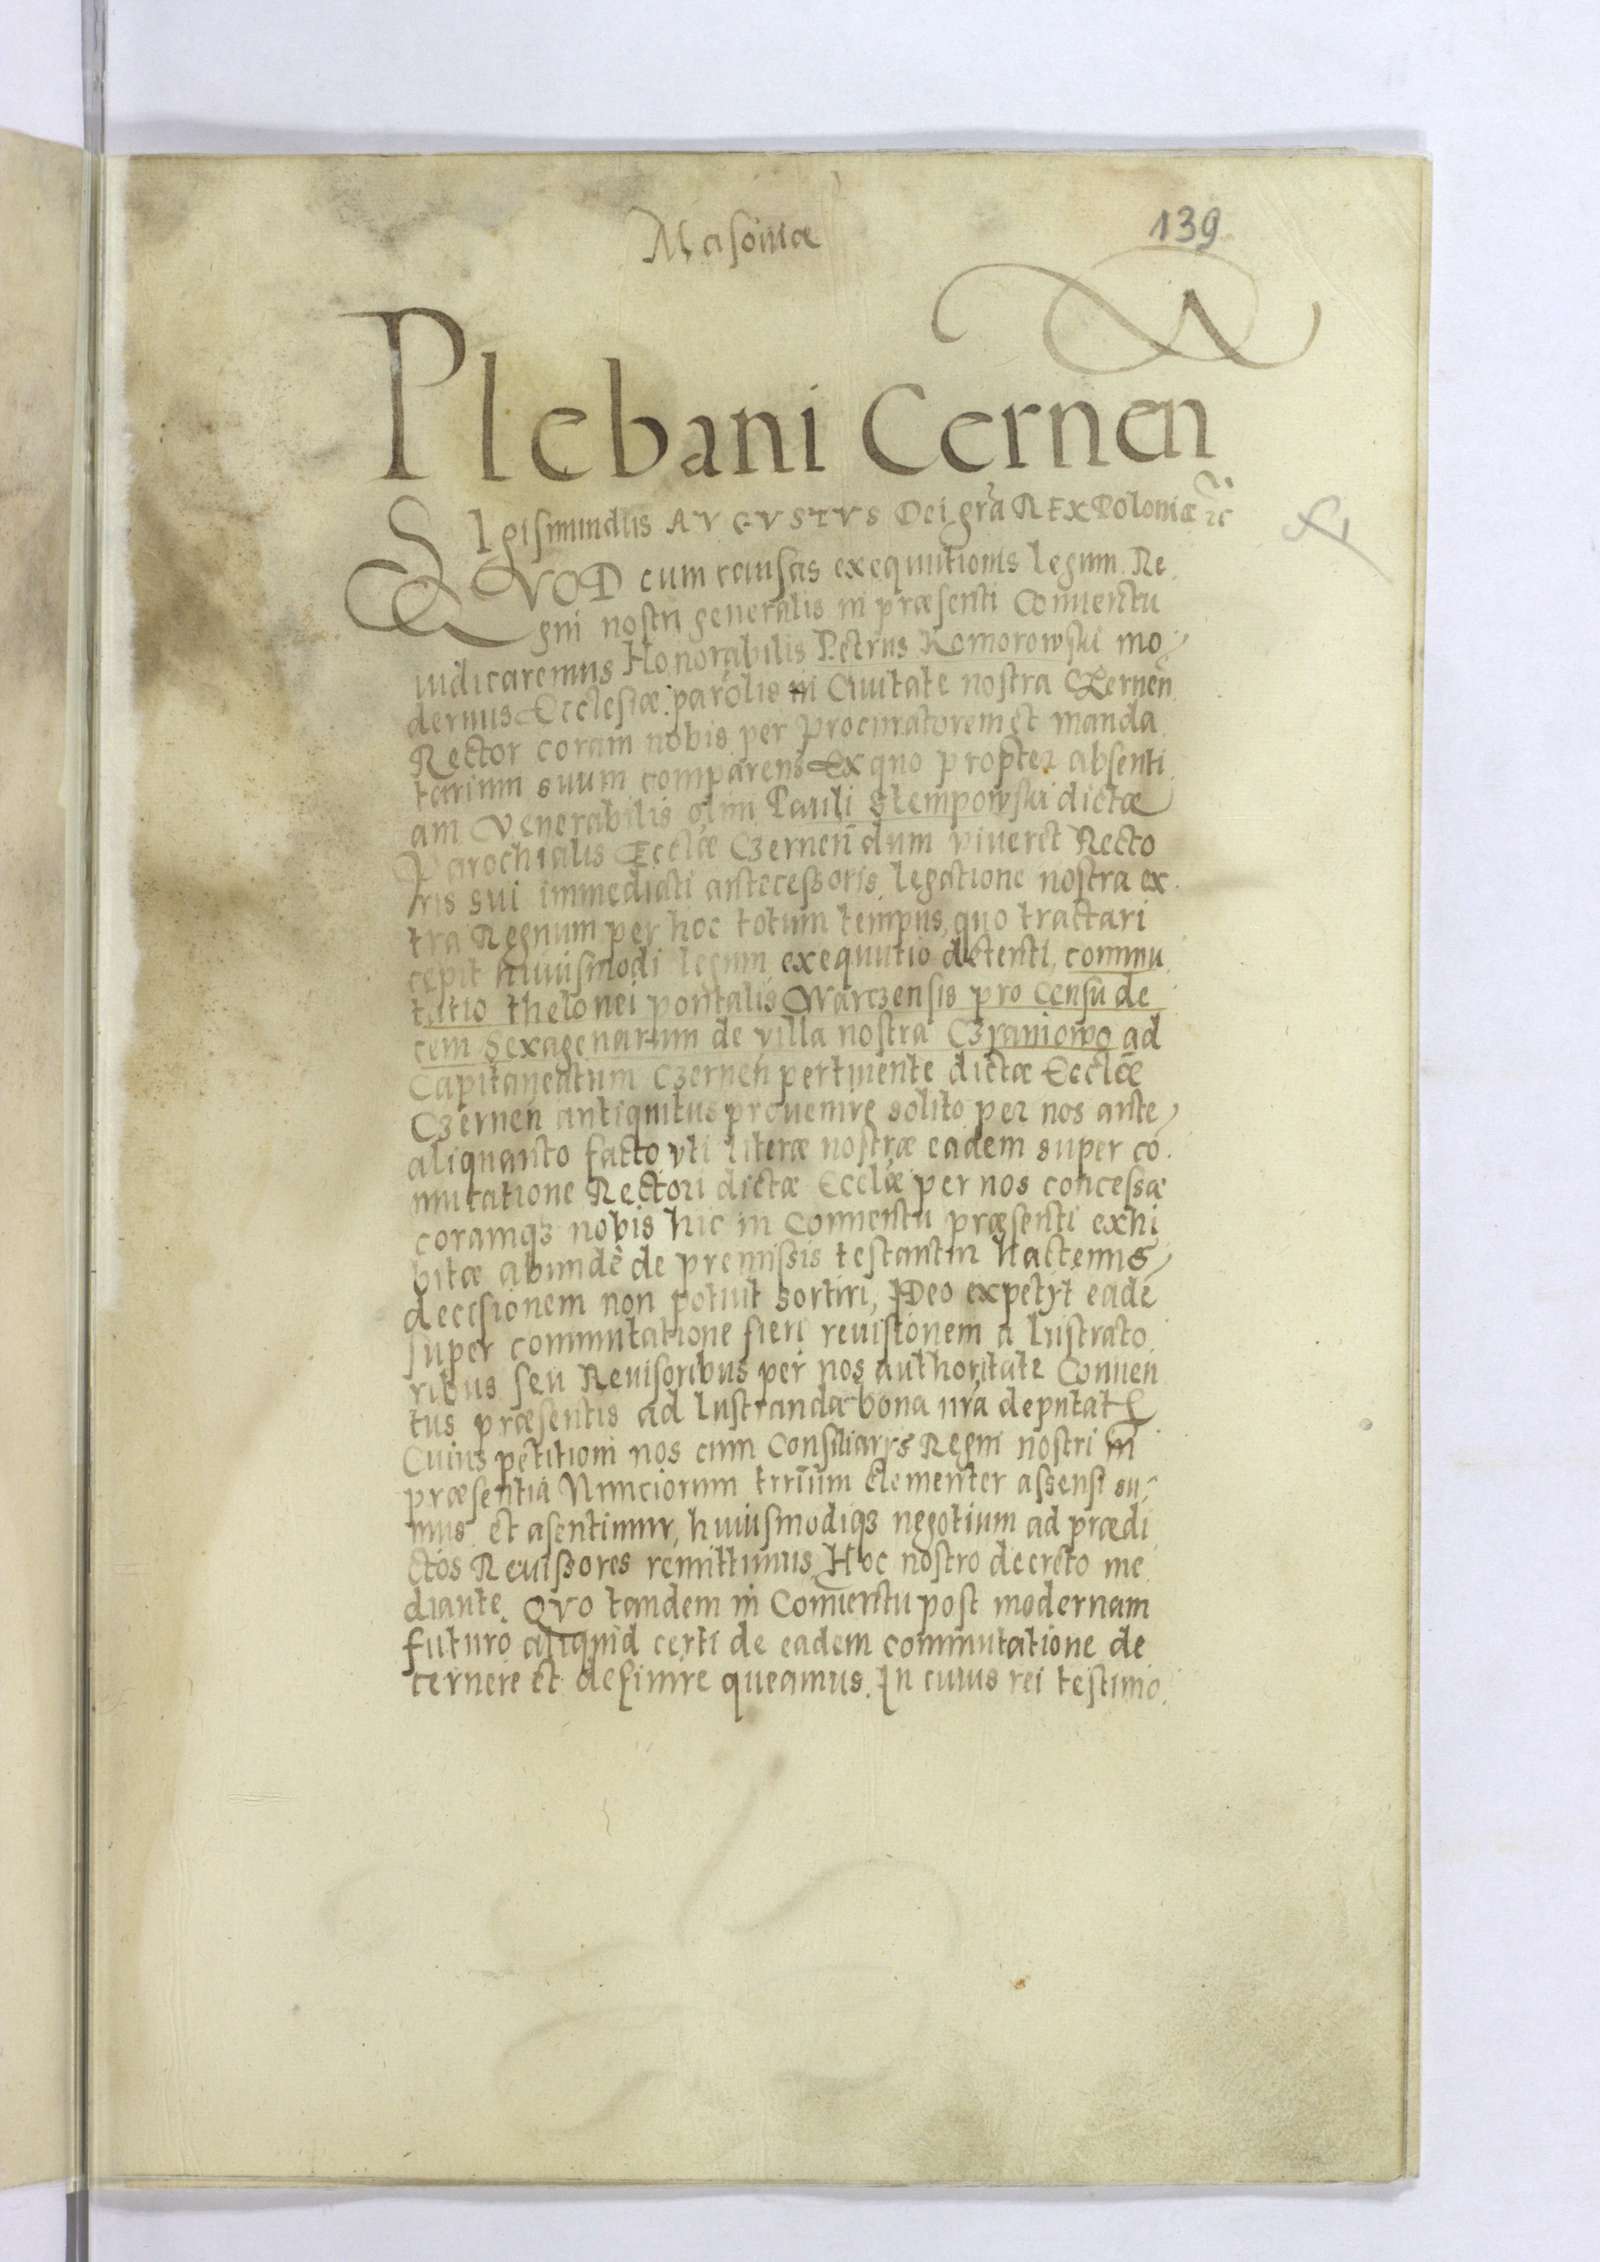 Masouiæ
139
Plebani Cernen
SIgismundus AVGVSTVS Dei gra REX Poloniæ
QVOD cum causas exequutionis legum Re
gni nostri generalis in præsenti Conuentu
iudicaremus Honorabilis Petrus Komorowski mo
dernus Ecclesiæ parolis in Ciuitate nostra Czernen̄
Rector coram nobis per Procuratorem et manda
tarium suum comparens Ex quo propter absenti
am Venerabilis olim Pauli Stempowski dictæ
Parochialis Ecclæ Czernen̄ dum viueret Recto
ris sui immediati antecessoris legatione nostra ex
tra Regnum per hoc totum tempus, quo tractari
cepit huiusmodi legum exequutio detenti, commu
tatio thelonei pontalis Warczensis pro censu de
cem Sexagenarum de villa nostra Czraniowo ad
Capitaneatum Czernen̄ pertinente dictæ Ecclæ
Czernen̄ antiquitus prouenire solito per nos ante
aliquanto facto vti literæ nostræ eadem super co
mutatione Rectori dictæ Ecclæ per nos concessæ
coramqȝ nobis hic in Conuentu præsenti exhi
bitæ abundè de premissis testantur hactenus
decisionem non potuit sortiri, Ideo expetyt eadē
super commutatione fieri reuisionem a lustrato
ribus seu Reuisoribus per nos authoritate Conuen
tus præsentis ad lustranda bona nrā deputat
Cuius petitioni nos cum Consiliarys Regni nostri in
præsentia Nunciorum trrium clementer assensi su
mus et asentimur, huiusmodiqȝ negotium ad prædi
ctos Reuissores remittimus Hoc nostro decreto me
diante. QVO tandem in Conuentu post modernam
futuro aliquid certi de eadem commutatione de
cernere et definire queamus. In cuius rei testimo